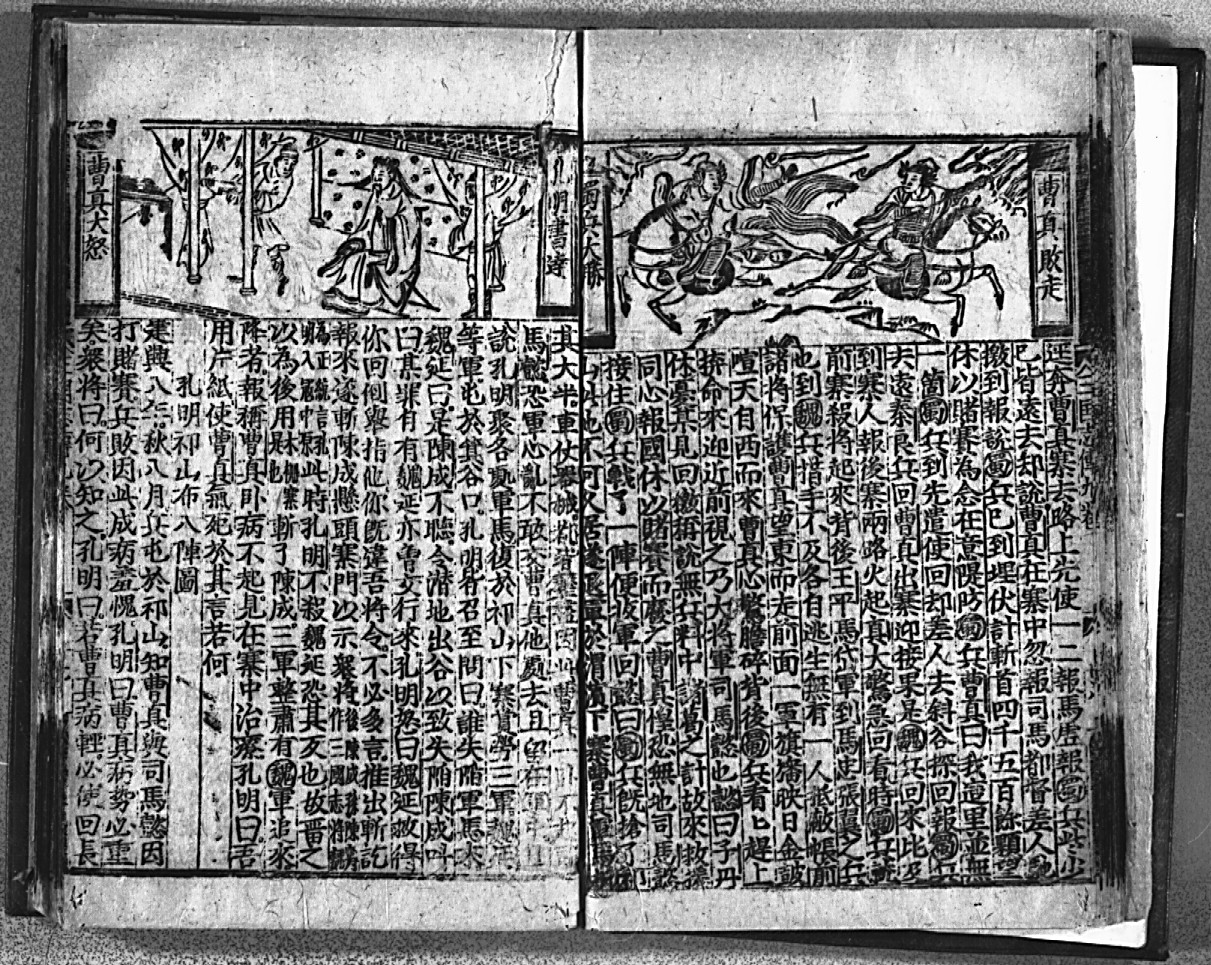 曹真敗走
蜀兵大勝
延奔曹真寨去略上先使一二報馬虛報蜀兵些少
已皆遠去却說曹真在寨中忽報司馬都督差人馳
撥到報說蜀兵已到埋伏計斬首四千五百餘顆望
休以賭賽為念在意隄防蜀兵曹真曰我這里並無
一箇蜀兵到先遣使回却差人去斜谷探回報蜀兵
去遠秦良兵回曹真出寨迎接果是魏兵回來比及
到寨人報後寨兩路火起真大驚急回看時蜀兵
前寨殺將起來背後王平馬岱軍到馬忠張嶷之兵
也到魏兵措手不及各自逃生無有一人抵敵帳前
諸將保護曹真望東而走前面一軍旗旛映日金鼓
喧天自西而來曹真心驚膽碎背後蜀兵看匕趕上
拚命來迎近前視之乃大將軍司馬懿也懿曰子丹
休憂某見回繳稱說無兵料中諸葛之計故來救援
同心報國休以賭賽而廢之曹真惶恐無地司馬懿
接住蜀兵戰了一陣便收軍回懿曰蜀兵既搶了
此地不可久居遂退軍於渭濱下寨曹真
明書
曹真大怒
其大半軍仗器械
馬懿恐軍心亂不敢交曹真他處去且留在軍中
說孔明聚各處軍馬復於祁山下寨賞勞三軍魏延
等軍屯於箕谷口孔明皆召至問曰誰失陷軍馬來
魏延曰是陳成不聽令潛地出谷以致失陷陳成叫
曰甚罪有有魏延亦曾交行來孔明怒曰魏延救得
你回倒舉指他你既違吾將令不必多言推出斬訖
報來逐斬陳成懸頭寨門以示衆將
以為後用斬了陳成三軍整肅有魏軍追來
降者報稱曹真卧病不起見在寨中治療孔明曰吾
用片紙使曹真氣死於其言若何
孔明祁山布八陣圖
建興八年秋八月兵屯於祁山知曹真與司馬懿因
打賭賽兵敗因此成病羞愧孔明曰曹真病勢必重
矣衆將曰何以知之孔明曰若曹真病輕必使回長